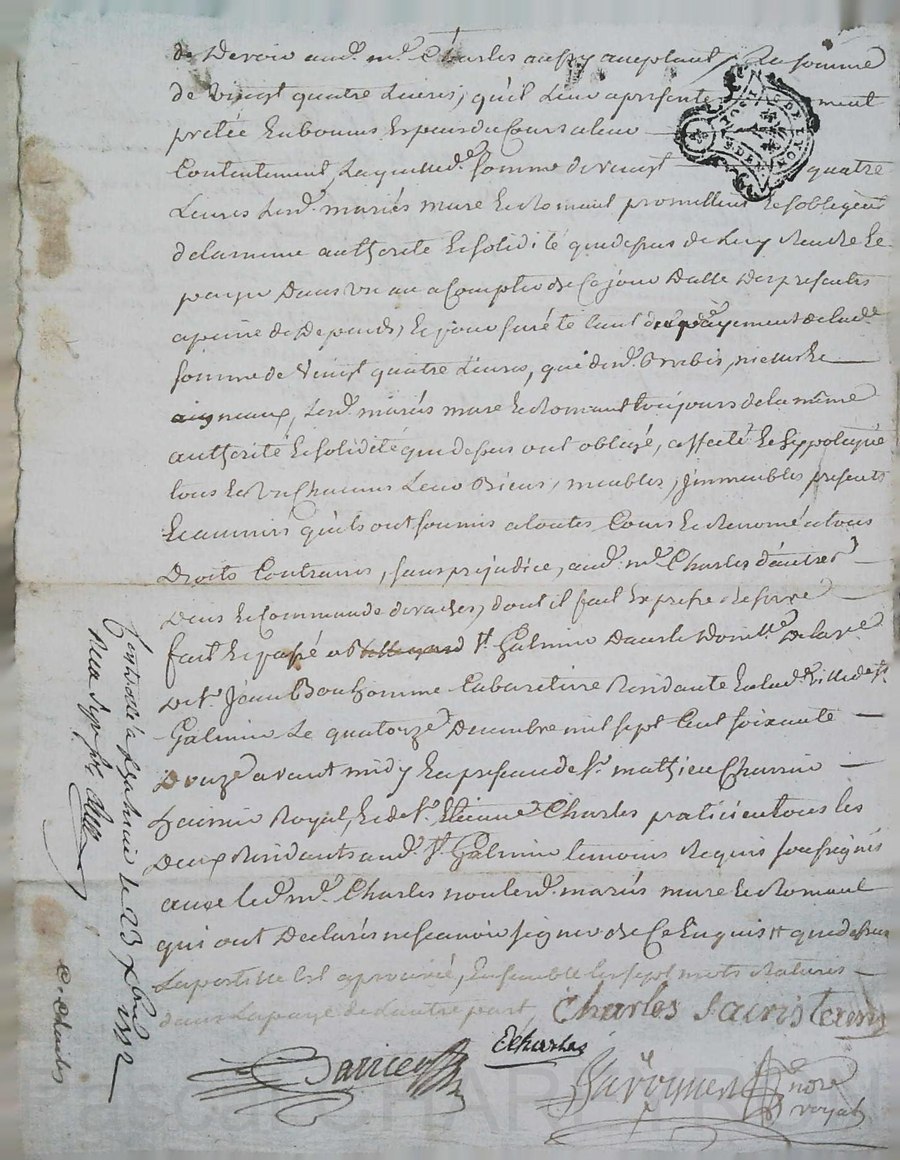 de devoir aud. m.e Charles aussy acceptant, la somme
de vingt quatre Livres, qu'il Leur a presente ment
pretée En bonnes Especes du Cours a leur
Contentement, Laquelle d.e somme de vingt quatre
Livres Lesd. mariés mure Et Romant promettent Et s'obligent
de la meme authorité Et solidité que dessus de Luy Rendre Et
payer Dans un an a Compter de Ce jour Datte des presentes
a peine de Depends, Et pour sureté tant du payement de lad.e
somme de Vingt quatre Livres, que desd. Brebis, meture Et
agneaux, Lesd. mariés mure Et Romant toujours de la même
authorité Et solidité que dessus ont obligé, affecté Et hippotequé
tous Et un Chacuns Leurs Biens, meubles, Jmmeubles presents
Et avenirs qu'ils ont soumis a toutes Cours Et Renoncé a tous
Droits Contraires, sans préjudice, aud. m.e Charles d'autres
Deus Et Commande de vaches, dont il fait Expresse Reserve
fait Et passé a St. Galmier Dans le Domicille De la ve
De sr. Jean Bonhomme Cabaretiere Residante En lad. ville de St.
Galmier Le quatorze Decembre mil sept Cent soixante
Douze avant midy En presence de sr. mathieu Charrin
huissier Royal, Et de sr. Etienne Charles praticien tous les
Deux Residants aud. St. Galmier temoins Requis soussignés
avec led. m.e Charles non lesd. mariés mure Et Romant
qui ont Declarés ne scavoir signer de Ce Enquis Et que dessus
La postille Est aprouvée, Ensemble Les sept mots Raturés
dans La page de L'autre part,
Charles
Echarles
nore
royal
Controllé a St galmier le 23 Xbre 1772
Reçu
E. Charles